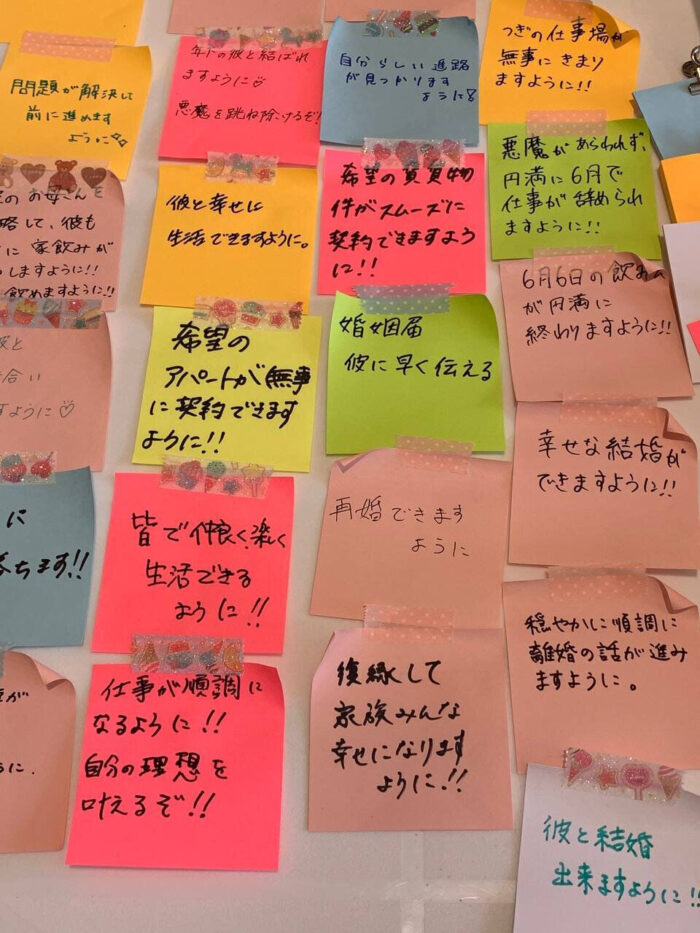 問題が解決して
前に進めます
ように
年下の彼と結ばれ
ますように♡
悪魔を跳ね除けるぞ!
自分らしい進路
が見つかります
ように
つぎの仕事場が
無事にきまり
ますように!!
のお母さんを
略して、彼も
に家飲みが
しますように!!
飲めますように!!
彼と幸せに
生活できるますように。
希望の賃貸物
件がスムーズに
契約できますよう
に!!
悪魔があらわれず、
円満に6月で
仕事が辞められ
ますように!!
彼と
合い
ように♡
希望の
アパートが無事
に契約できます
ように!!
婚姻届
彼に早く伝える
6月6日の飲み
が円満に
終わりますように!!
に
ちます!!
皆で仲良く楽しく
生活できる
ように!!
再婚できます
ように
幸せな結婚が
できますように!!
が
に.
仕事が順調に
なるように!!
自分の理想を
叶えるぞ!!
復縁して
家族みんな
幸せになります
ように!!
穏やかに順調に
離婚の話が進み
ますように。
彼と結婚
出来ますように!!